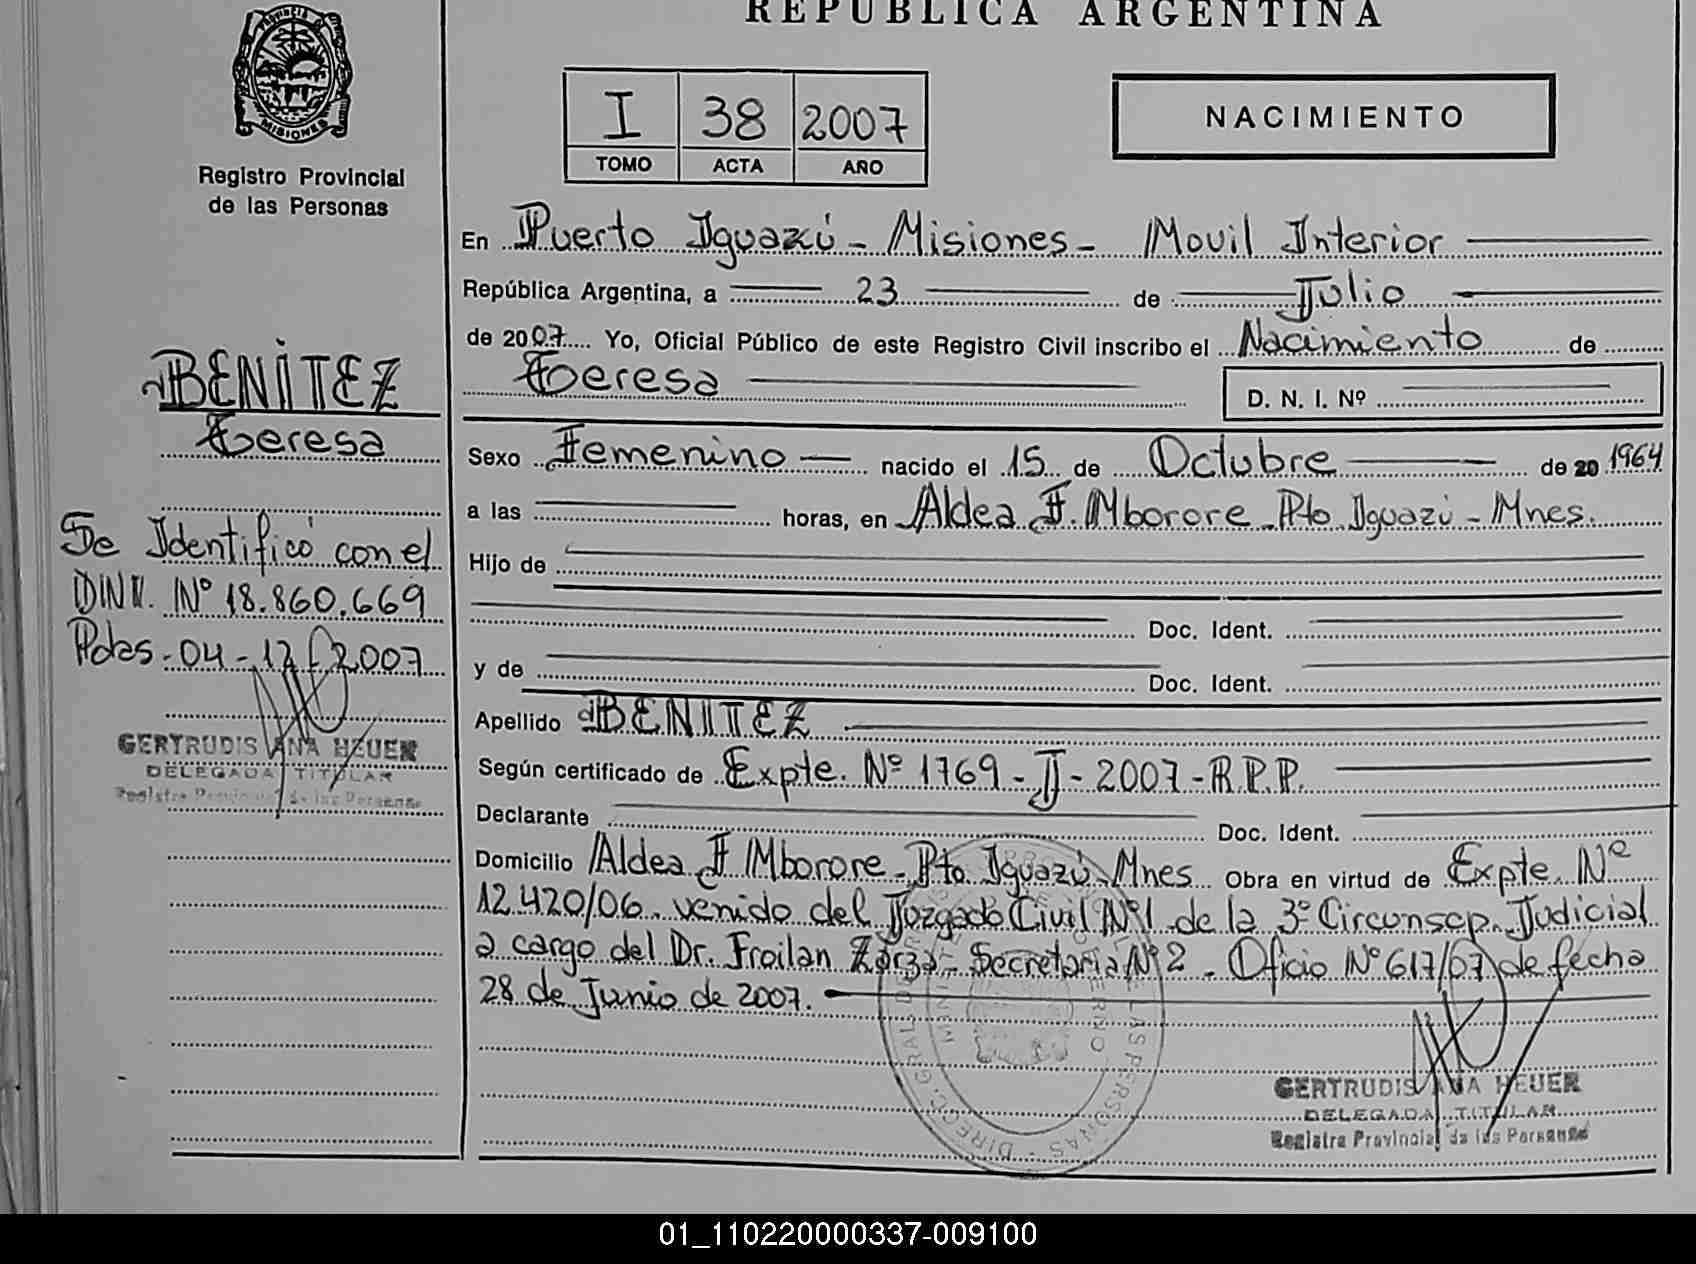 REPUBLICA ARGENTINA
MISIONES
Registro Provincial
de las Personas
I 38 2007
TOMO ACTA AÑO
NACIMIENTO
En Puerto Iguazú - Misiones - Movil Interior
República Argentina, a 23 de Julio
de 2007 Yo, Oficial Público de este Registro Civil inscribo el Nacimiento de
Teresa D. N. I. Nº
BENITEZ
Teresa
Sexo Femenino nacido el 15 de Octubre de 20 1964
a las horas, en Aldea F. Mborore Pto Iguazú - Mnes.
Hijo de
Doc. Ident.
y de
Doc. Ident.
Apellido BENITEZ
Según certificado de Expte. Nº 1769 - J - 2007 - R.P.P.
Declarante Doc. Ident.
Domicilio Aldea F Mborore - Pto Iguazú - Mnes Obra en virtud de Expte. Nº
12.420/06. venido del Juzgado Civil Nº1 de la 3º Circonscp. Judicial
a cargo del Dr. Froilan Zarza - Secretaria Nº 2 - Oficio Nº 617/07 de fecha
28 de Junio de 2007.
Se Identificó con el
Nº 18.860.669
Pdas - 04 - 12 - 2007
GERTRUDIS ANA HEUER
DELEGADA TITULAR
Registro Provincial de las Personas
GERTRUDIS ANA HEUER
DELEGADA TITULAR
Registro Provincial de las Personas
01_110220000337-009100